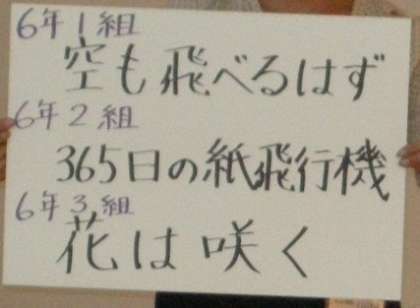 6年1組
空も飛べるはず
6年2組
365日の紙飛行機
6年3組
花は咲く